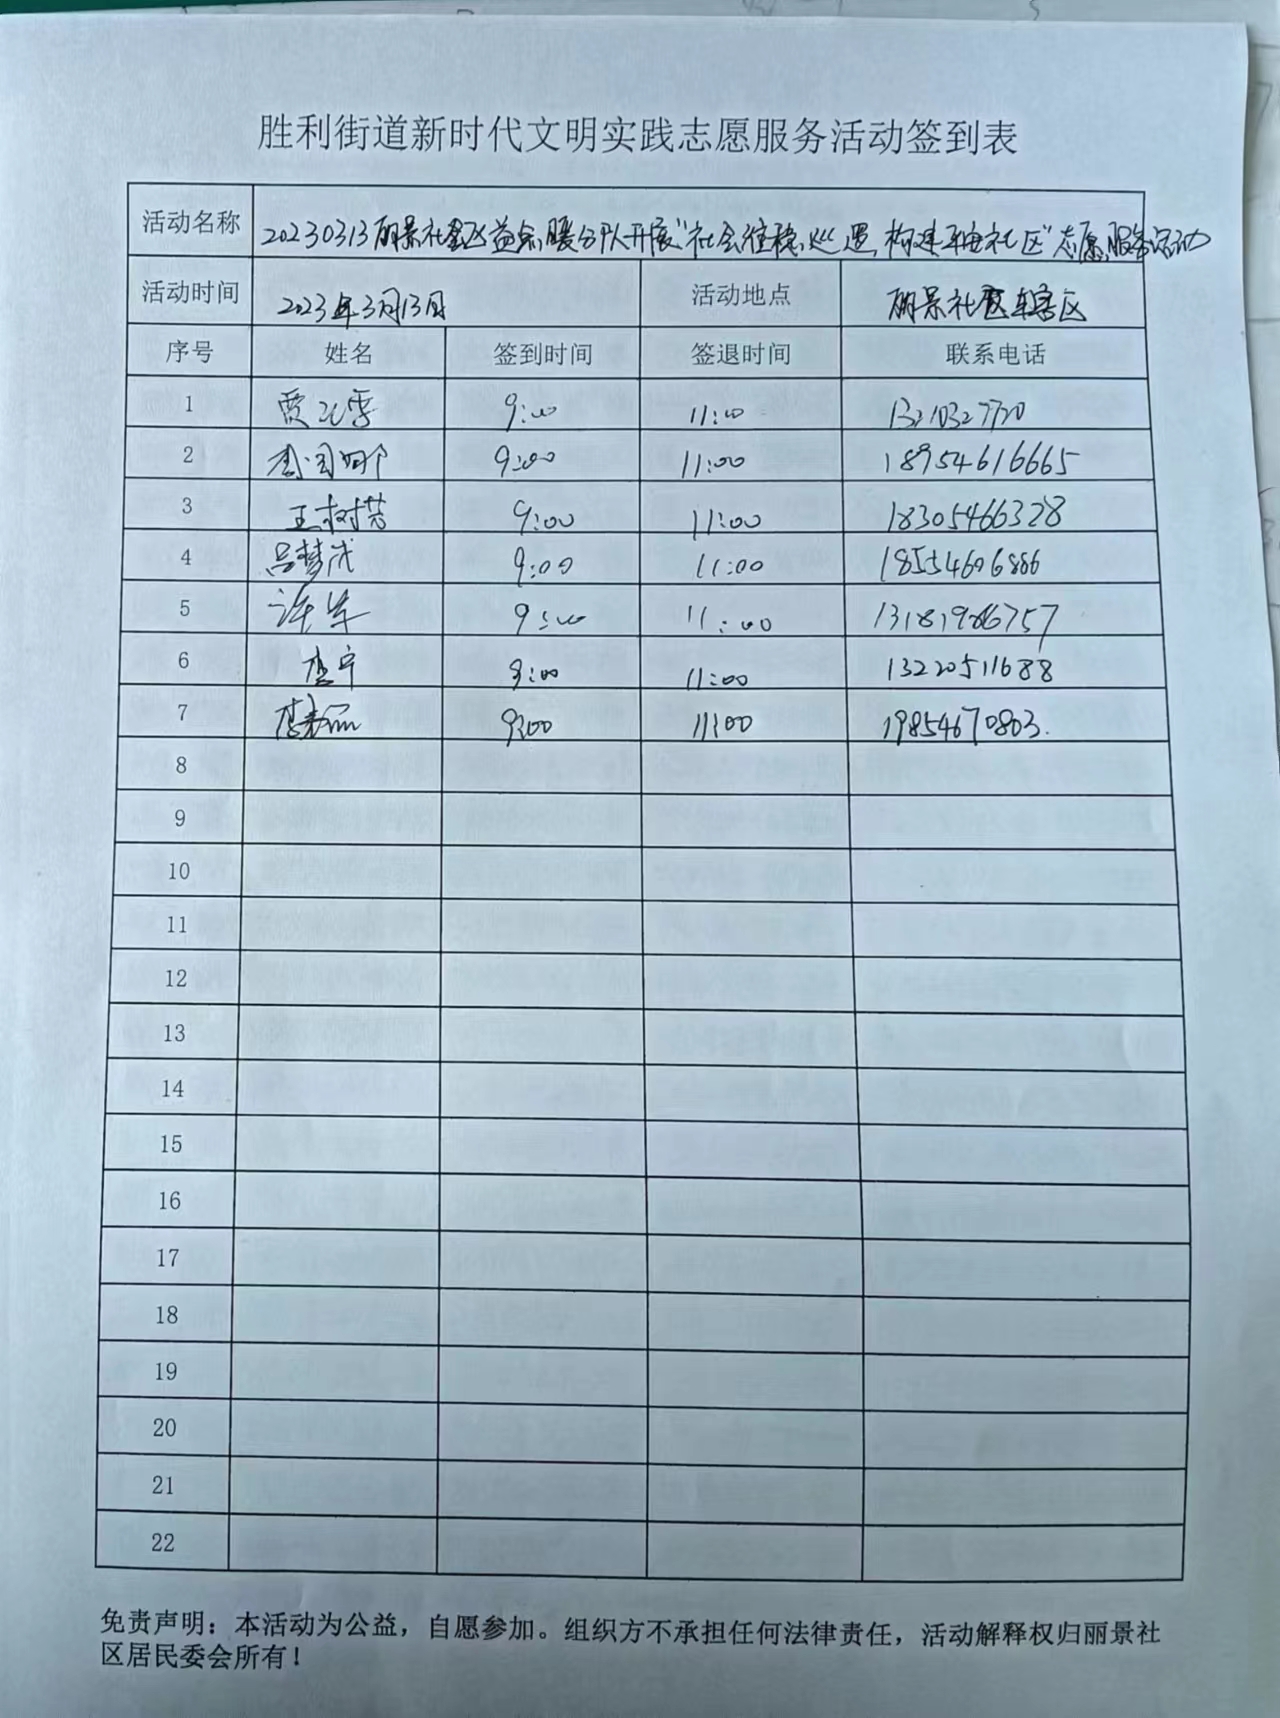 胜利街道新时代文明实践志愿服务活动签到表
活动名称 20230313丽景社区益家暖分队开展"社会维稳巡逻,构建平安社区"志愿服务活动
活动时间 2023年3月13日 活动地点 丽景社区辖区
序号 姓名 签到时间 签退时间 联系电话
1 9:00 11:00 13210327720
2 9:00 11:00 18954616665
3 王树芳 9:00 11:00 18305466328
4 吕梦成 9:00 11:00 18554606886
5 许华 9:00 11:00 13181986757
6 李宁 9:00 11:00 13220511688
7 9:00 11:00 19854670803.
8
9
10
11
12
13
14
15
16
17
18
19
20
21
22
免责声明:本活动为公益,自愿参加。组织方不承担任何法律责任,活动解释权归丽景社
区居民委会所有!